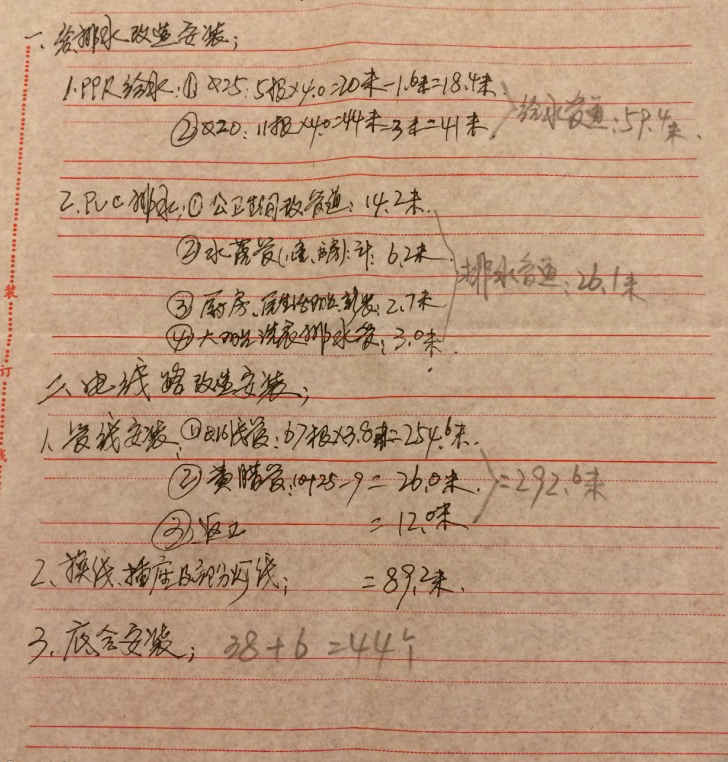 一、给排水改造安装;
1.PPR给水:① ∅25:5根×4.0=20米-1.6米=18.4米
② ∅20:11根×4.0=44米-3米=41米.
给水管道:59.4米.
2.PVC排水:①公卫生间改管道:14.2米.
②水落管 计:6.2米
③厨房、 2.7米
④大阳台洗衣排水管:3.0米.
排水管道:26.1米
二、电线路改造安装;
1.管线安装:①∅16线管:67根×3.8米=254.6米.
②黄腊管:10+25-9=26.0米.
③返工 =12.0米
=292.6米
2、换线、插座及部分灯线; =89.2米.
3、底合安装; 38+6=44个
装
订
线